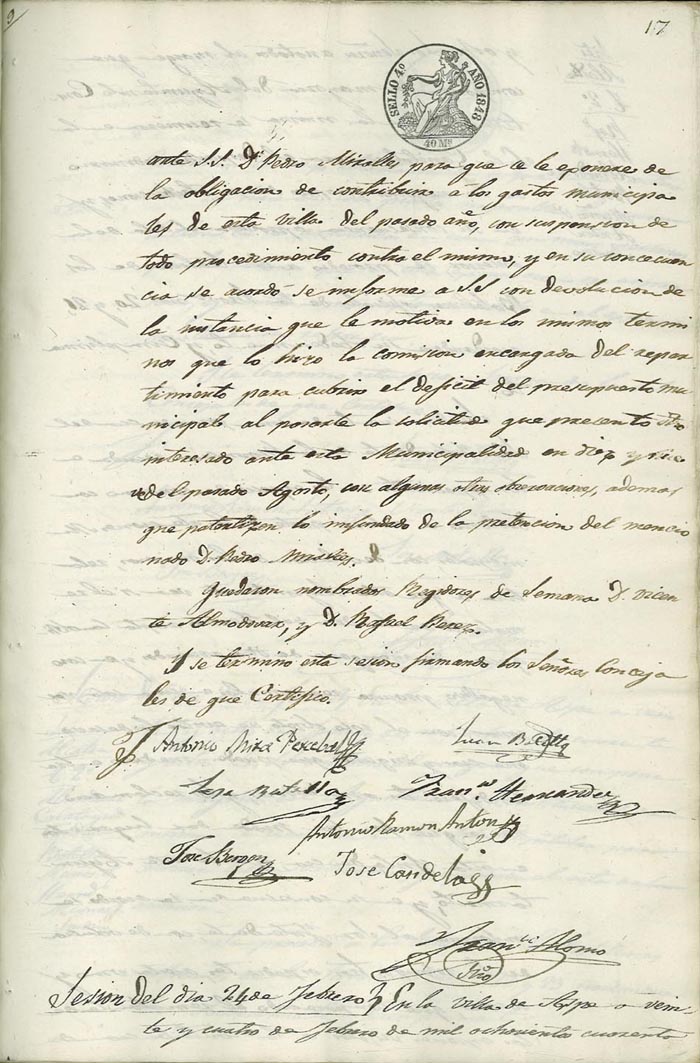 17
SELLO 4º AÑO 1848
40 Ms
ante S.S. Dn Pedro Miralles para que se le exonere de
la obligacion de contribuir a los gastos municipa
les de esta villa del pasado año, con suspension de
todo procedimiento contra el mismo, y en su concecuen
cia se acordó se informe a S.S. con devolucion de
la instancia que le motiva en los mismos termi
nos que lo hizo la comision encargada del repar
timiento para cubrir el deficit del presupuesto mu
nicipal al pasarle la solicitud que presento dho
interesado ante esta Municipalidad en diez y
del pasado Agosto, con algunas otras observaciones, ademas
que patentizen lo infundado de la pretencion del mencio
nado D. Pedro Miralles.
Quedaron nombrados Regidores de Semana D. Vicen
te Almodovar, y D. Rafael Perez.
Y se termino esta sesion firmando los Señores Conceja
les de que Certifico.
Antonio Mira Percebal
Juan
Jose
Franco Hernandez
Antonio Ramon Anton
Jose
Jose Candela
Franco Alonso
Srio
Sesion del dia 24 de Febrero } En la villa de Aspe a vein
te y cuatro de Febrero de mil ochocientos cuarenta